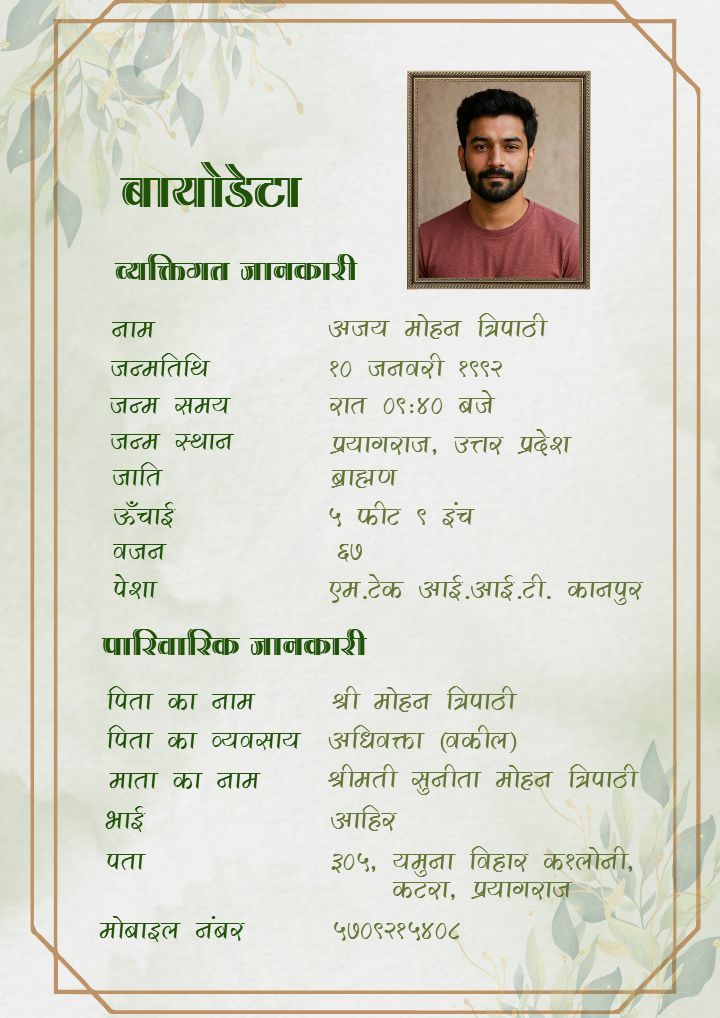 बायोडेटा
व्यक्तिगत जानकारी
नाम अजय मोहन त्रिपाठी
जन्मतिथि १० जनवरी १९९२
जन्म समय रात ०९:४० बजे
जन्म स्थान प्रयागराज, उत्तर प्रदेश
जाति ब्राह्मण
ऊँचाई ५ फीट ९ इंच
वजन ६७
पेशा एम.टेक आई.आई.टी. कानपुर
पारिवारिक जानकारी
पिता का नाम श्री मोहन त्रिपाठी
पिता का व्यवसाय अधिवक्ता (वकील)
माता का नाम श्रीमती सुनीता मोहन त्रिपाठी
भाई आहिर
पता ३०५, यमुना विहार क१लोनी,
कटरा, प्रयागराज
मोबाइल नंबर ५७०९२१५४०८